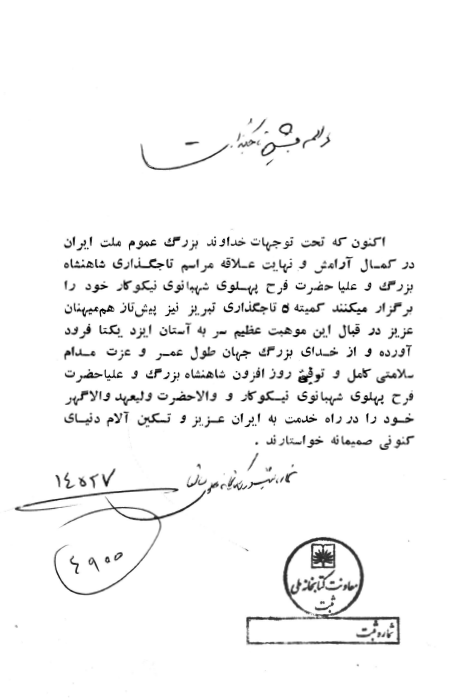 اکنون که تحت توجهات خداوند بزرگ عموم ملت ایران
در کمال آرامش و نهایت علاقه مراسم تاجگذاری شاهنشاه
بزرگ و علیا حضرت فرح پهلوی شهبانوی نیکوکار خود را
برگزار میکنند کمیته تاجگذاری تبریز نیز پیش‌تاز هم‌میهنان
عزیز در قبال این موهبت عظیم سر به آستان ایزد یکتا فرود
آورده و از خدای بزرگ جهان طول عمر و عزت مدام
سلامتی کامل و توفیق روز افزون شاهنشاه بزرگ و علیاحضرت
فرح پهلوی شهبانوی نیکوکار و والاحضرت ولیعهد والاگهر
خود را در راه خدمت به ایران عزیز و تسکین آلام دنیای
کنونی صمیمانه خواستارند .
۱۴۵۲۷
۴۹۰۰
معاونت کتابخانه ملی
ثبت
شماره ثبت